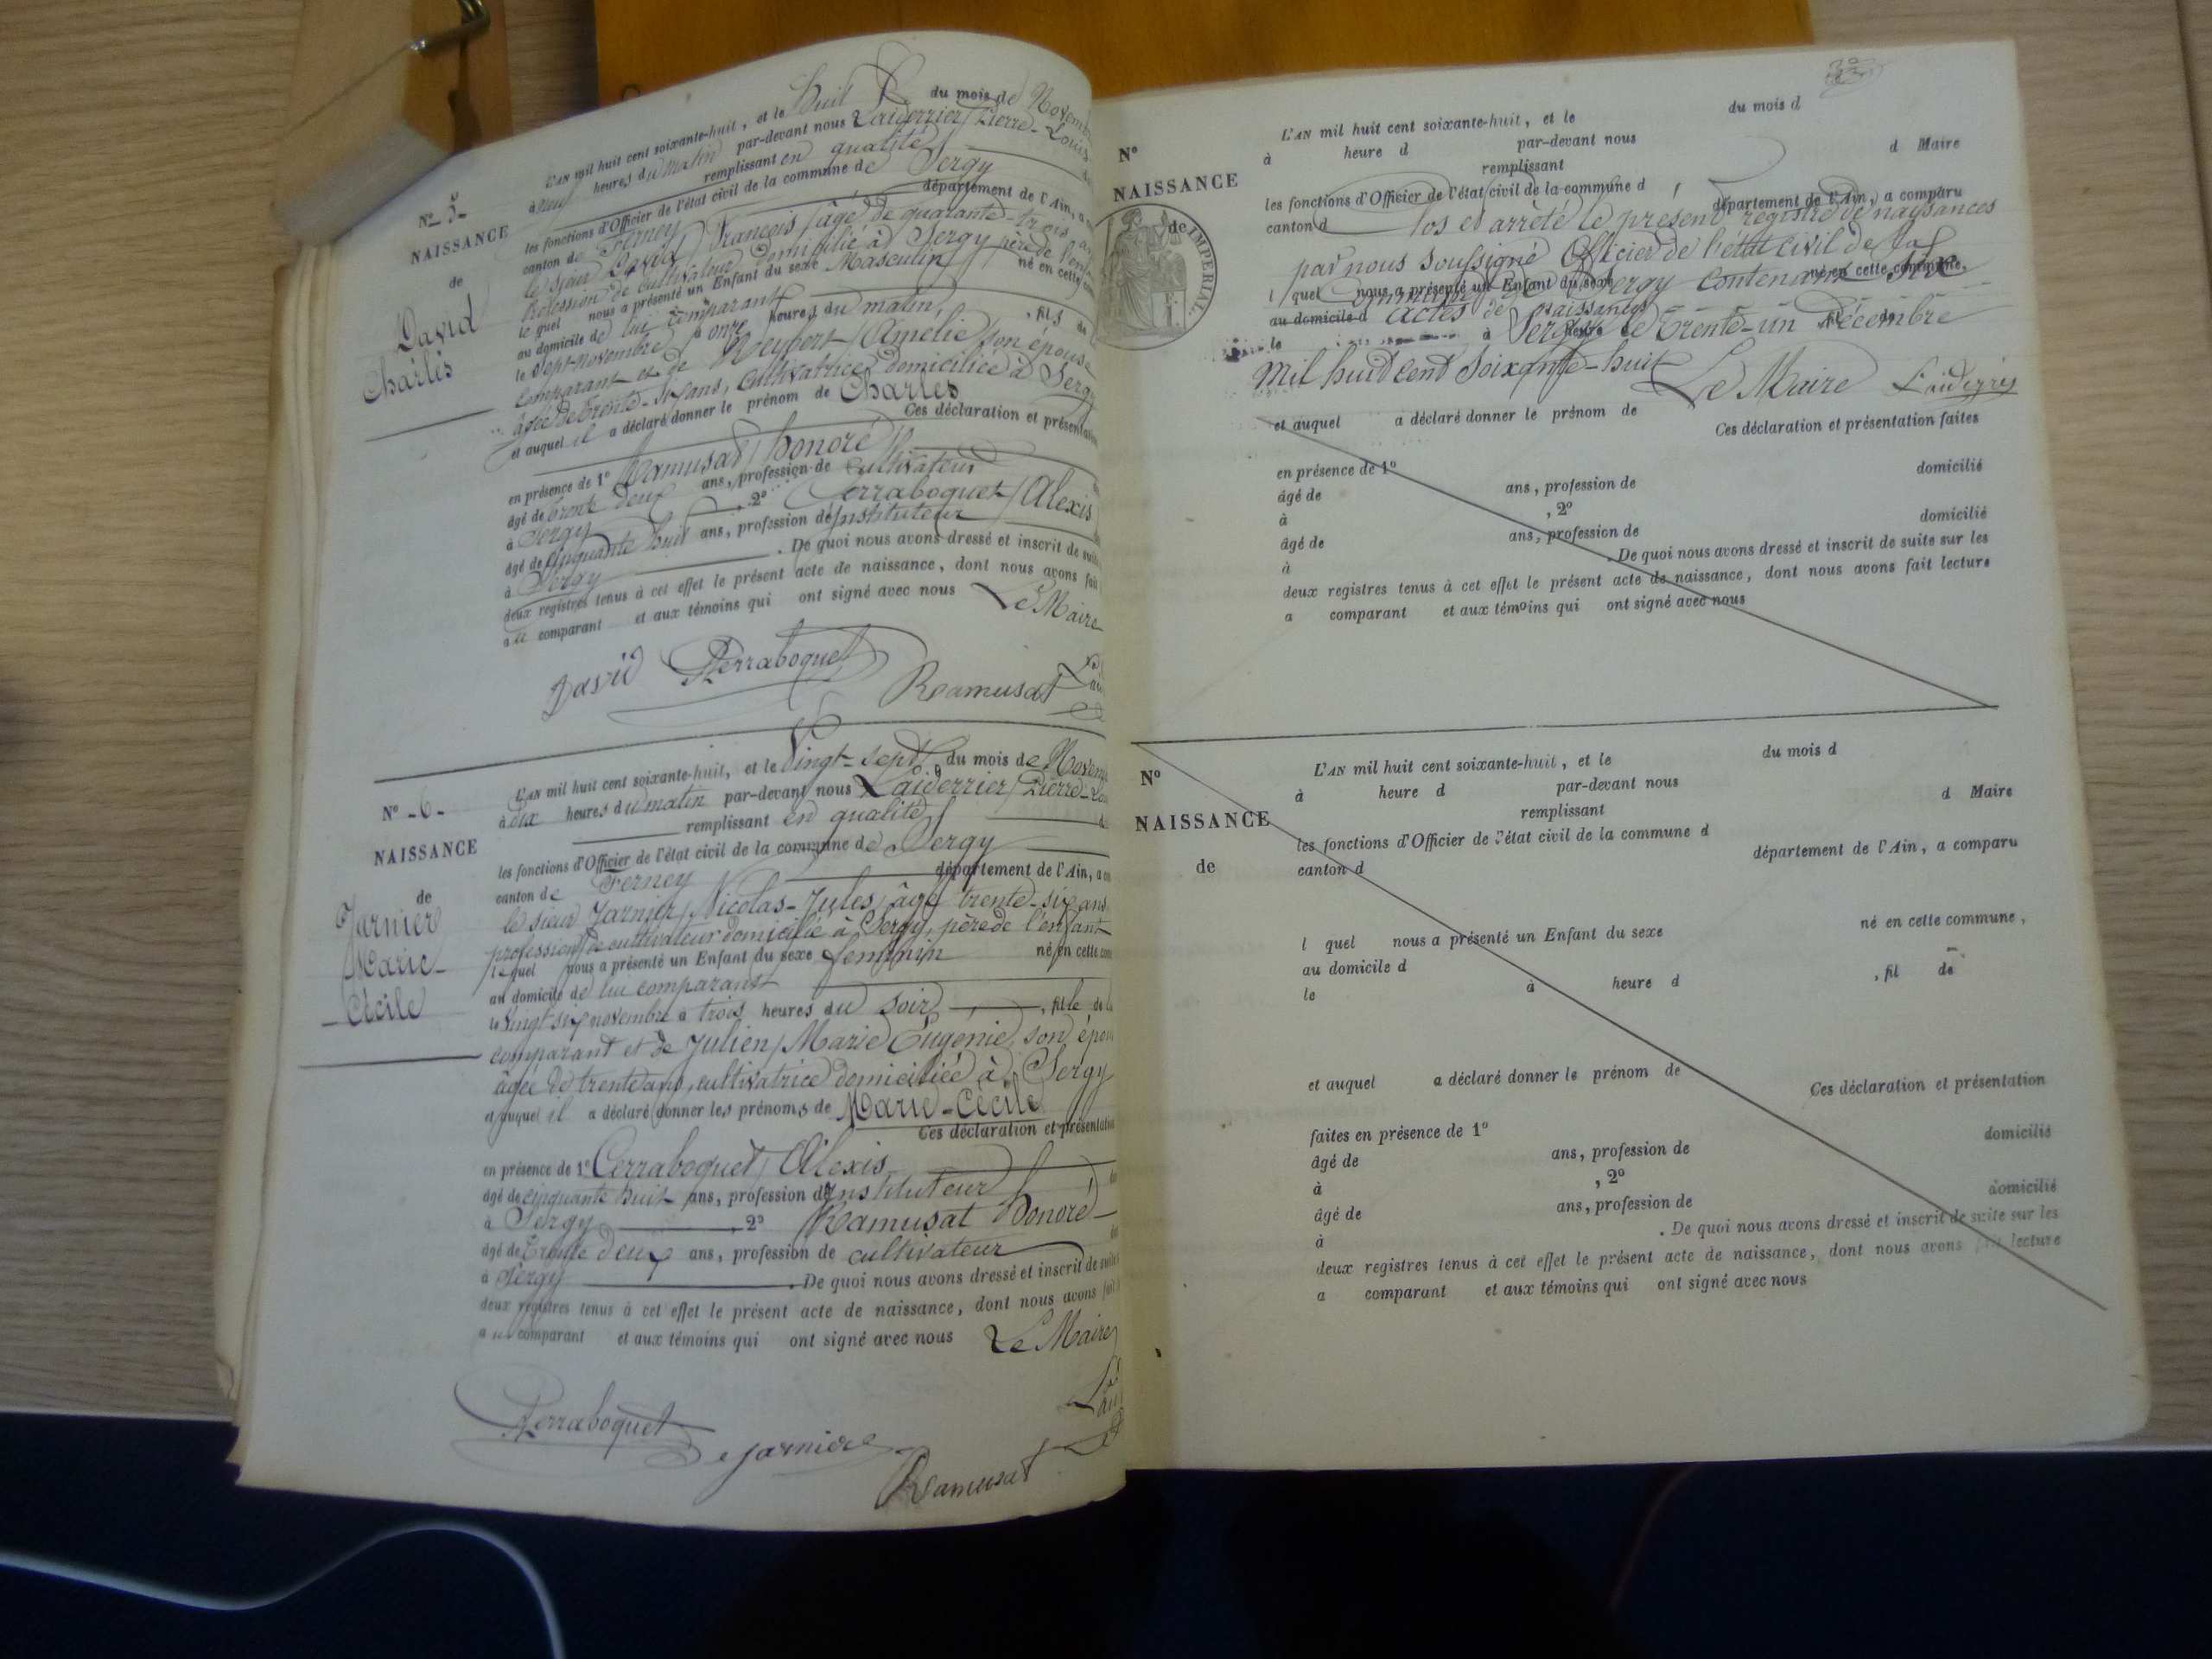 N° 5
NAISSANCE
de
David
Charles
L'AN mil huit cent soixante-huit, et le huit du mois de Novemb
à neuf heures du matin par-devant nous Laiderrier Pierre-Louis
remplissant en qualité
les fonctions d'Officier de l'état civil de la commune de Sergy
canton de Ferney département de l'Ain, a
le sieur David François âgé de quarante-trois an
Profession de cultivateur domicilié à Sergy père de l'enf
le quel nous a présenté un Enfant du sexe Masculin né en cette com
au domicile de lui comparant
le sept novembre à onze heures du matin, , fils de
comparant et de Reybert Amélie son épouse
âgée de trente-six ans, cultivatrice domiciliée à Sergy
et auquel il a déclaré donner le prénom de Charles
Ces déclaration et présentation
en présence de 1° Ramusat honoré
âgé de trente deux ans, profession de cultivateur
à Sergy , 2° Perraboquet Alexis
âgé de cinquante huit ans, profession de Instituteur
à Sergy . De quoi nous avons dressé et inscrit de suite
deux registres tenus à cet effet le présent acte de naissance, dont nous avons fait
au comparant et aux témoins qui ont signé avec nous Le Maire
David Perraboquet
Ramusat
N° -6-
NAISSANCE
de
Jarnier
Marie-
Cécile
L'AN mil huit cent soixante-huit, et le Vingt-sept du mois de Novem
à dix heures du matin par-devant nous Laiderrier Pierre-Lo
remplissant en qualité
les fonctions d'Officier de l'état civil de la commune de Sergy
canton de Ferney département de l'Ain, a
le sieur Jarnier Nicolas-Jules, âgé trente-six ans,
profession de cultivateur domicilié à Sergy, père de l'enfant
le quel nous a présenté un Enfant du sexe féminin né en cette com
au domicile de lui comparant
le Vingt six novembre à trois heures du soir , fille de
comparant et de Julien Marie Eugénie, son épou
âgée de trente ans, cultivatrice domiciliée à Sergy
et auquel il a déclaré donner les prénoms de Marie-Cécile
Ces déclaration et présentation
en présence de 1° Perraboquet Alexis
âgé de cinquante huit ans, profession de Instituteur
à Sergy , 2° Ramusat honoré
âgé de Trente deux ans, profession de cultivateur
à Sergy . De quoi nous avons dressé et inscrit de suite
deux registres tenus à cet effet le présent acte de naissance, dont nous avons fait
au comparant et aux témoins qui ont signé avec nous Le Maire
Perraboquet
Jarnier
Ramusat
N°
NAISSANCE
de
IMPERIAL
L'AN mil huit cent soixante-huit, et le du mois d
à heure d par-devant nous
remplissant d Maire
les fonctions d'Officier de l'état civil de la commune d
canton d département de l'Ain, a comparu
Clos et arrêté le présent registre de naissances
par nous soussigné Officier de l'état civil de la
l quel nous a présenté un Enfant du sexe né en cette commune,
commune de Sergy contenant six
au domicile d
actes de naissances
le à heure d , fil de
à Sergy le trente-un Décembre
mil huit cent soixante-huit
Le Maire Laiderrier
et auquel a déclaré donner le prénom de
Ces déclaration et présentation faites
en présence de 1° domicilié
âgé de ans, profession de
à , 2° domicilié
âgé de ans, profession de
à . De quoi nous avons dressé et inscrit de suite sur les
deux registres tenus à cet effet le présent acte de naissance, dont nous avons fait lecture
a comparant et aux témoins qui ont signé avec nous
N°
NAISSANCE
de
L'AN mil huit cent soixante-huit, et le du mois d
à heure d par-devant nous
remplissant d Maire
les fonctions d'Officier de l'état civil de la commune d
canton d département de l'Ain, a comparu
l quel nous a présenté un Enfant du sexe né en cette commune,
au domicile d
le à heure d , fil de
et auquel a déclaré donner le prénom de
Ces déclaration et présentation
faites en présence de 1° domicilié
âgé de ans, profession de
à , 2° domicilié
âgé de ans, profession de
à . De quoi nous avons dressé et inscrit de suite sur les
deux registres tenus à cet effet le présent acte de naissance, dont nous avons fait lecture
a comparant et aux témoins qui ont signé avec nous